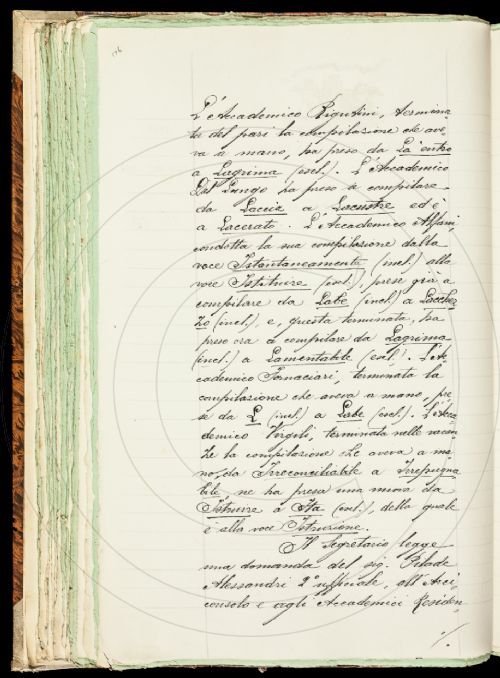 L'Accademico Rigutini, termina-
ta del pari la compilazione che ave-
va a mano, ha preso da Là entro
a Lagrima (escl.). L'Accademico
Del Lungo ha preso a compilare
da Laccia a Lacustre ed è
a Lacerato. L'Accademico Alfani,
condotta la sua compilazione dalla
voce Istantaneamente (incl.) alla
voce Istituire (incl.), prese già a
compilare da Labe (incl.) a Lacchez-
zo (incl.), e, questa terminata, ha
preso ora a compilare da Lagrima
(incl.) a Lamentabile (escl.). L'Ac
cademico Fornaciari, terminata la
compilazione che aveva a mano, pre-
se da L (incl.) a Labe (escl.). L'Acca-
demico Vergili, terminata nelle vacan-
ze la compilazione che aveva a ma-
no, da Irreconciliabile a Irrepugna
bile, ne ha presa una nuova da
Istruire a Ita (incl.), della quale
è alla voce Istruzione.
Il Segretario legge
una domanda del sig. Pilade
Alessandri 2° uffiziale, all'Arci
consolo e agli Accademici Residen-
./.